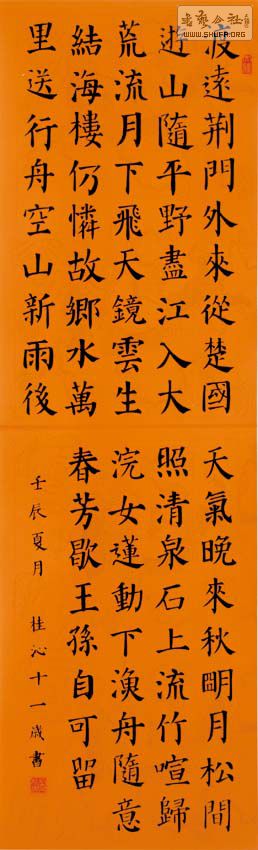 渡遠荊門外來從楚國
遊山隨平野盡江入大
荒流月下飛天鏡雲生
結海樓仍憐故鄉水萬
里送行舟空山新雨後
天氣晚來秋明月松間
照清泉石上流竹喧歸
浣女蓮動下漁舟隨意
春芳歇王孫自可留
壬辰夏月 桂沁十一歲書